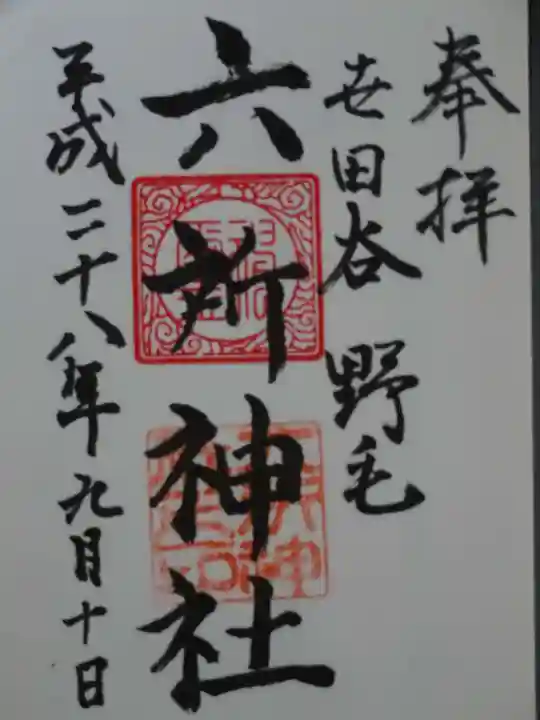 奉拝
世田谷 野毛
六所神社
平成二十八年九月十日